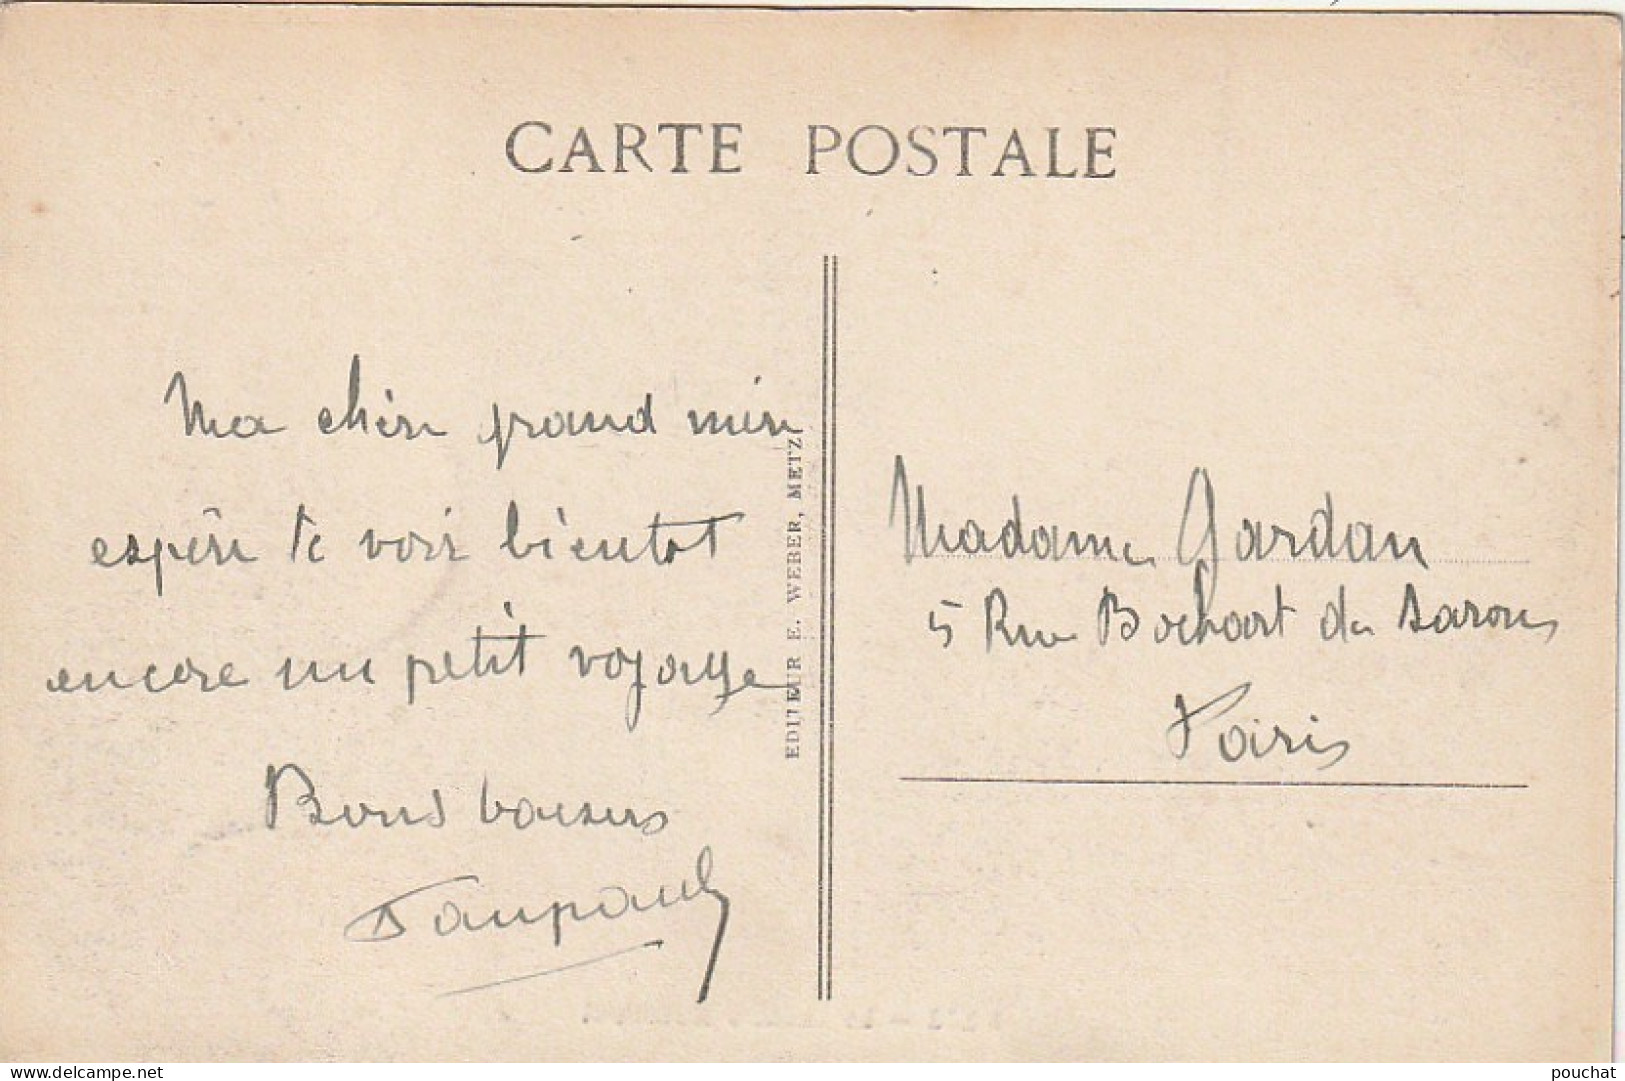 CARTE POSTALE
Ma chère grand mère
espère te voir bientot
encore un petit voyage
Bons baisers
EDITEUR E. WEBER, METZ
Madame Gardan
5 Rue Bochart de Sarons
Paris
delcampe.net
pouchat